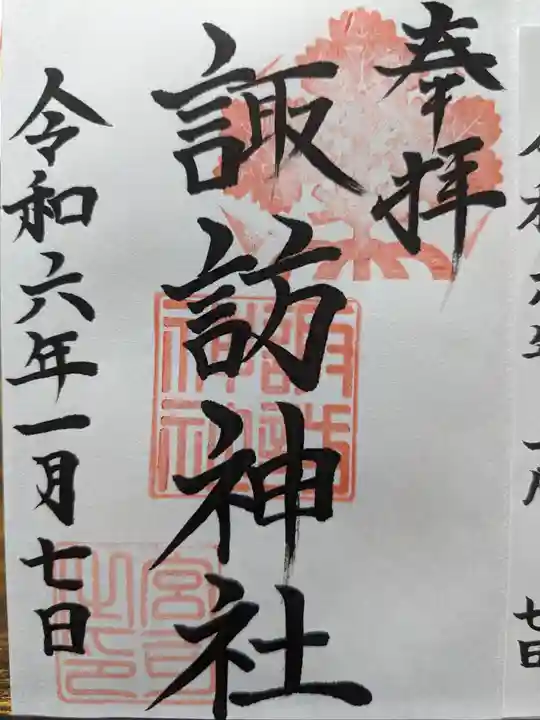 奉拝
諏訪神社
諏訪神社
宮司之印
令和六年一月七日